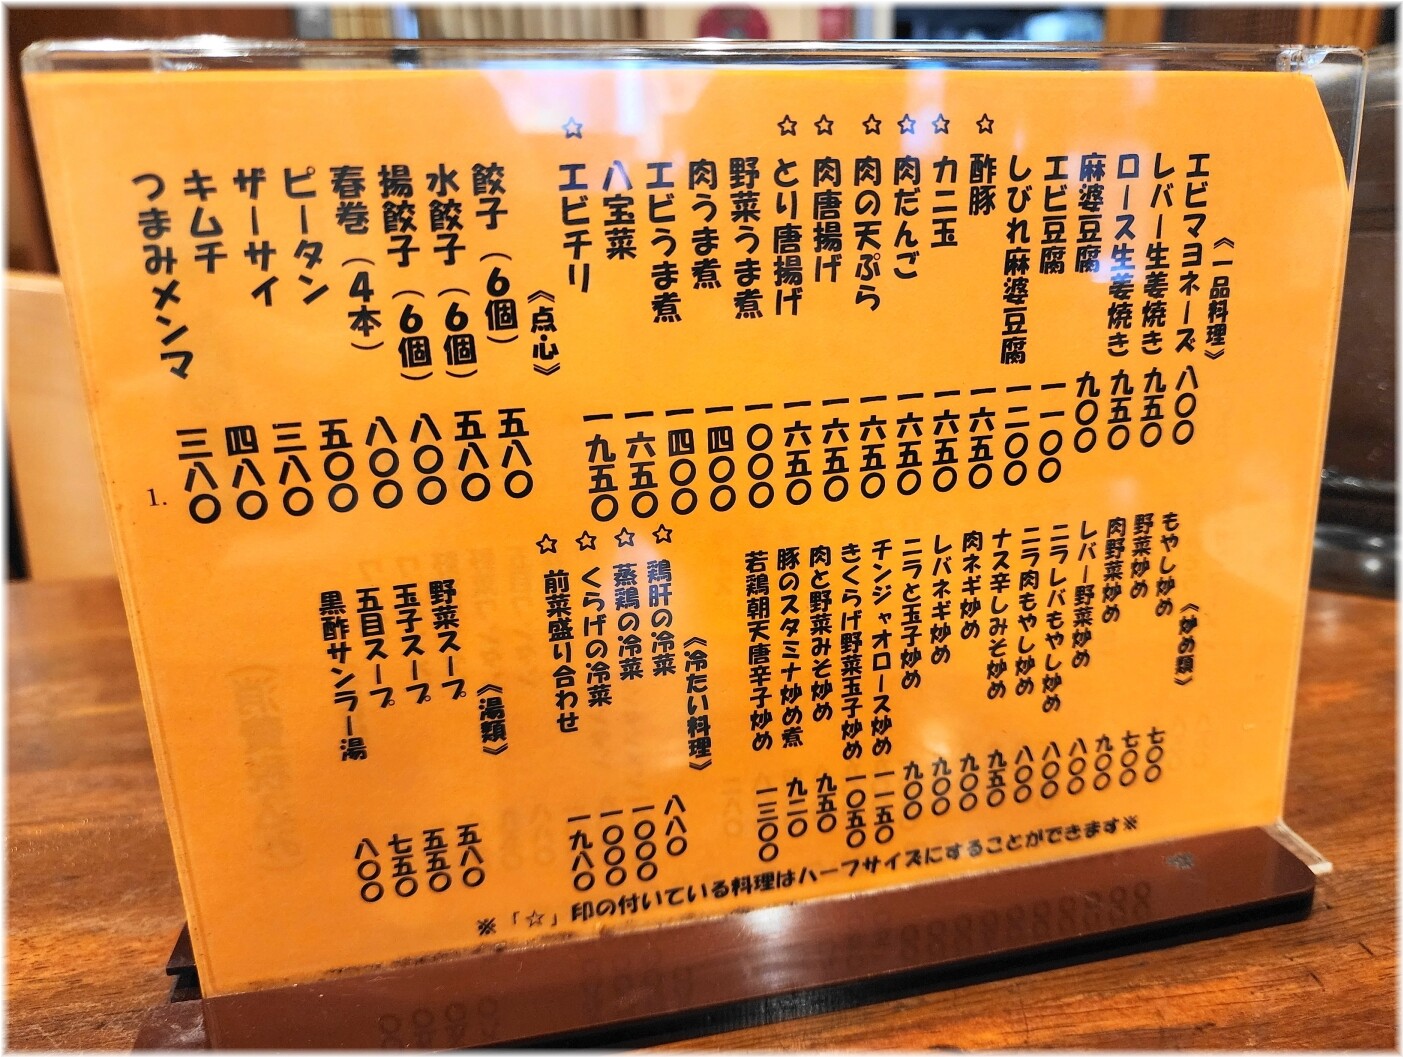 《一品料理》
エビマヨネーズ 八〇〇
レバー生姜焼き 九五〇
ロース生姜焼き 九五〇
麻婆豆腐 九〇〇
エビ豆腐 一一〇〇
しびれ麻婆豆腐 一二〇〇
☆ 酢豚 一六五〇
☆ カニ玉 一六五〇
☆ 肉だんご 一六五〇
☆ 肉の天ぷら 一六五〇
☆ 肉唐揚げ 一六五〇
☆ とり唐揚げ 一六五〇
野菜うま煮 一〇〇〇
肉うま煮 一四〇〇
エビうま煮 一四〇〇
八宝菜 一六五〇
☆ エビチリ 一九五〇
《点心》
餃子(6個) 五八〇
水餃子(6個) 五八〇
揚餃子(6個) 八〇〇
春巻(4本) 八〇〇
ピータン 五〇〇
ザーサイ 三八〇
キムチ 四八〇
つまみメンマ 三八〇
1.
《炒め類》
もやし炒め 七〇〇
野菜炒め 七〇〇
肉野菜炒め 九〇〇
レバー野菜炒め 八〇〇
ニラレバもやし炒め 八〇〇
ニラ肉もやし炒め 八〇〇
ナス辛しみそ炒め 九五〇
肉ネギ炒め 九〇〇
レバネギ炒め 九〇〇
ニラと玉子炒め 九〇〇
チンジャオロース炒め 一一五〇
きくらげ野菜玉子炒め 一〇五〇
肉と野菜みそ炒め 九五〇
豚のスタミナ炒め煮 九二〇
若鶏朝天唐辛子炒め 一三〇〇
《冷たい料理》
☆ 鶏肝の冷菜 八八〇
☆ 蒸鶏の冷菜 一〇〇〇
☆ くらげの冷菜 一〇〇〇
☆ 前菜盛り合わせ 一九八〇
《湯類》
野菜スープ 五八〇
玉子スープ 五五〇
五目スープ 七五〇
黒酢サンラー湯 八〇〇
※「☆」印の付いている料理はハーフサイズにすることができます※